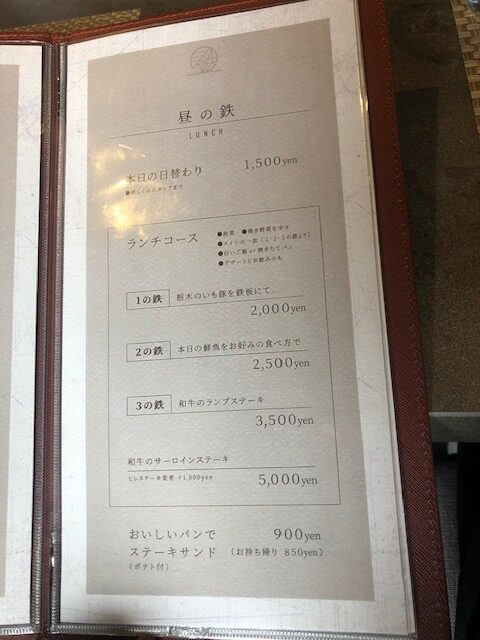 昼の鉄
LUNCH
本日の日替わり 1,500yen
●詳しくはスタッフまで
ランチコース
●前菜 ●焼き野菜を少々
●メインの一皿（1・2・3の鉄より）
●白いご飯 or 焼きたてパン
●デザートとお飲みもの
1の鉄 栃木のいも豚を鉄板にて…
2,000yen
2の鉄 本日の鮮魚をお好みの食べ方で
2,500yen
3の鉄 和牛のランプステーキ
3,500yen
和牛のサーロインステーキ
ヒレステーキ変更 +1,000yen 5,000yen
おいしいパンで 900yen
ステーキサンド （お持ち帰り 850yen）
（ポテト付）